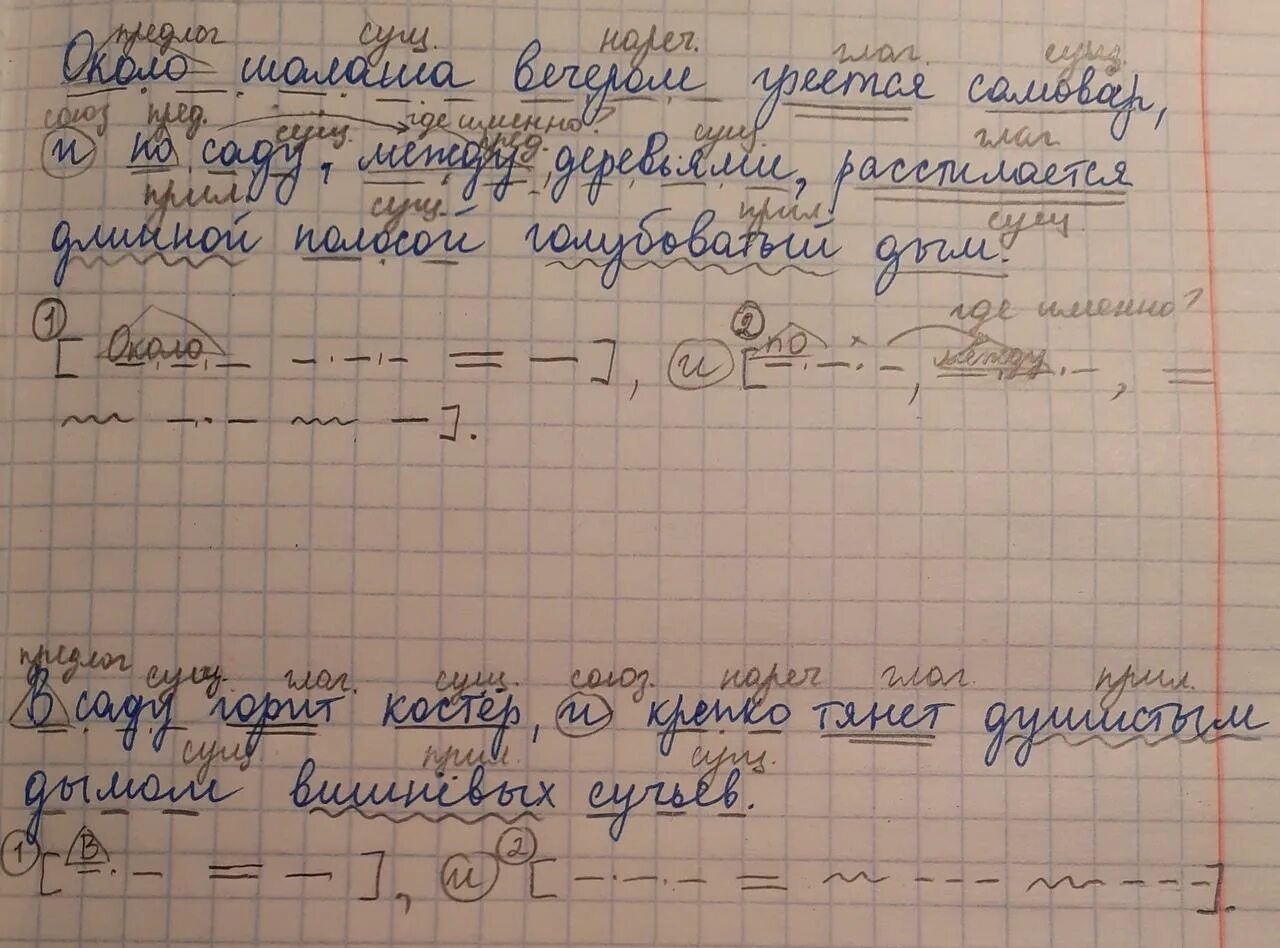 предлог сущ. нареч. глаг. сущ.
Около шалаша вечером греется самовар,
союз пред. сущ. где именно? пред. сущ глаг
и по саду, между деревьями, расстилается
прил. сущ. прил. сущ.
длинной полосой голубоватый дым.
1 2 где именно?
[Около ], и [по , между ,
].
предлог сущ. глаг. сущ. союз. нареч глаг. прил.
В саду горит костёр, и крепко тянет душистым
сущ прил. сущ.
дымом вишнёвых сучьев.
1 [В ], и 2 [ ].